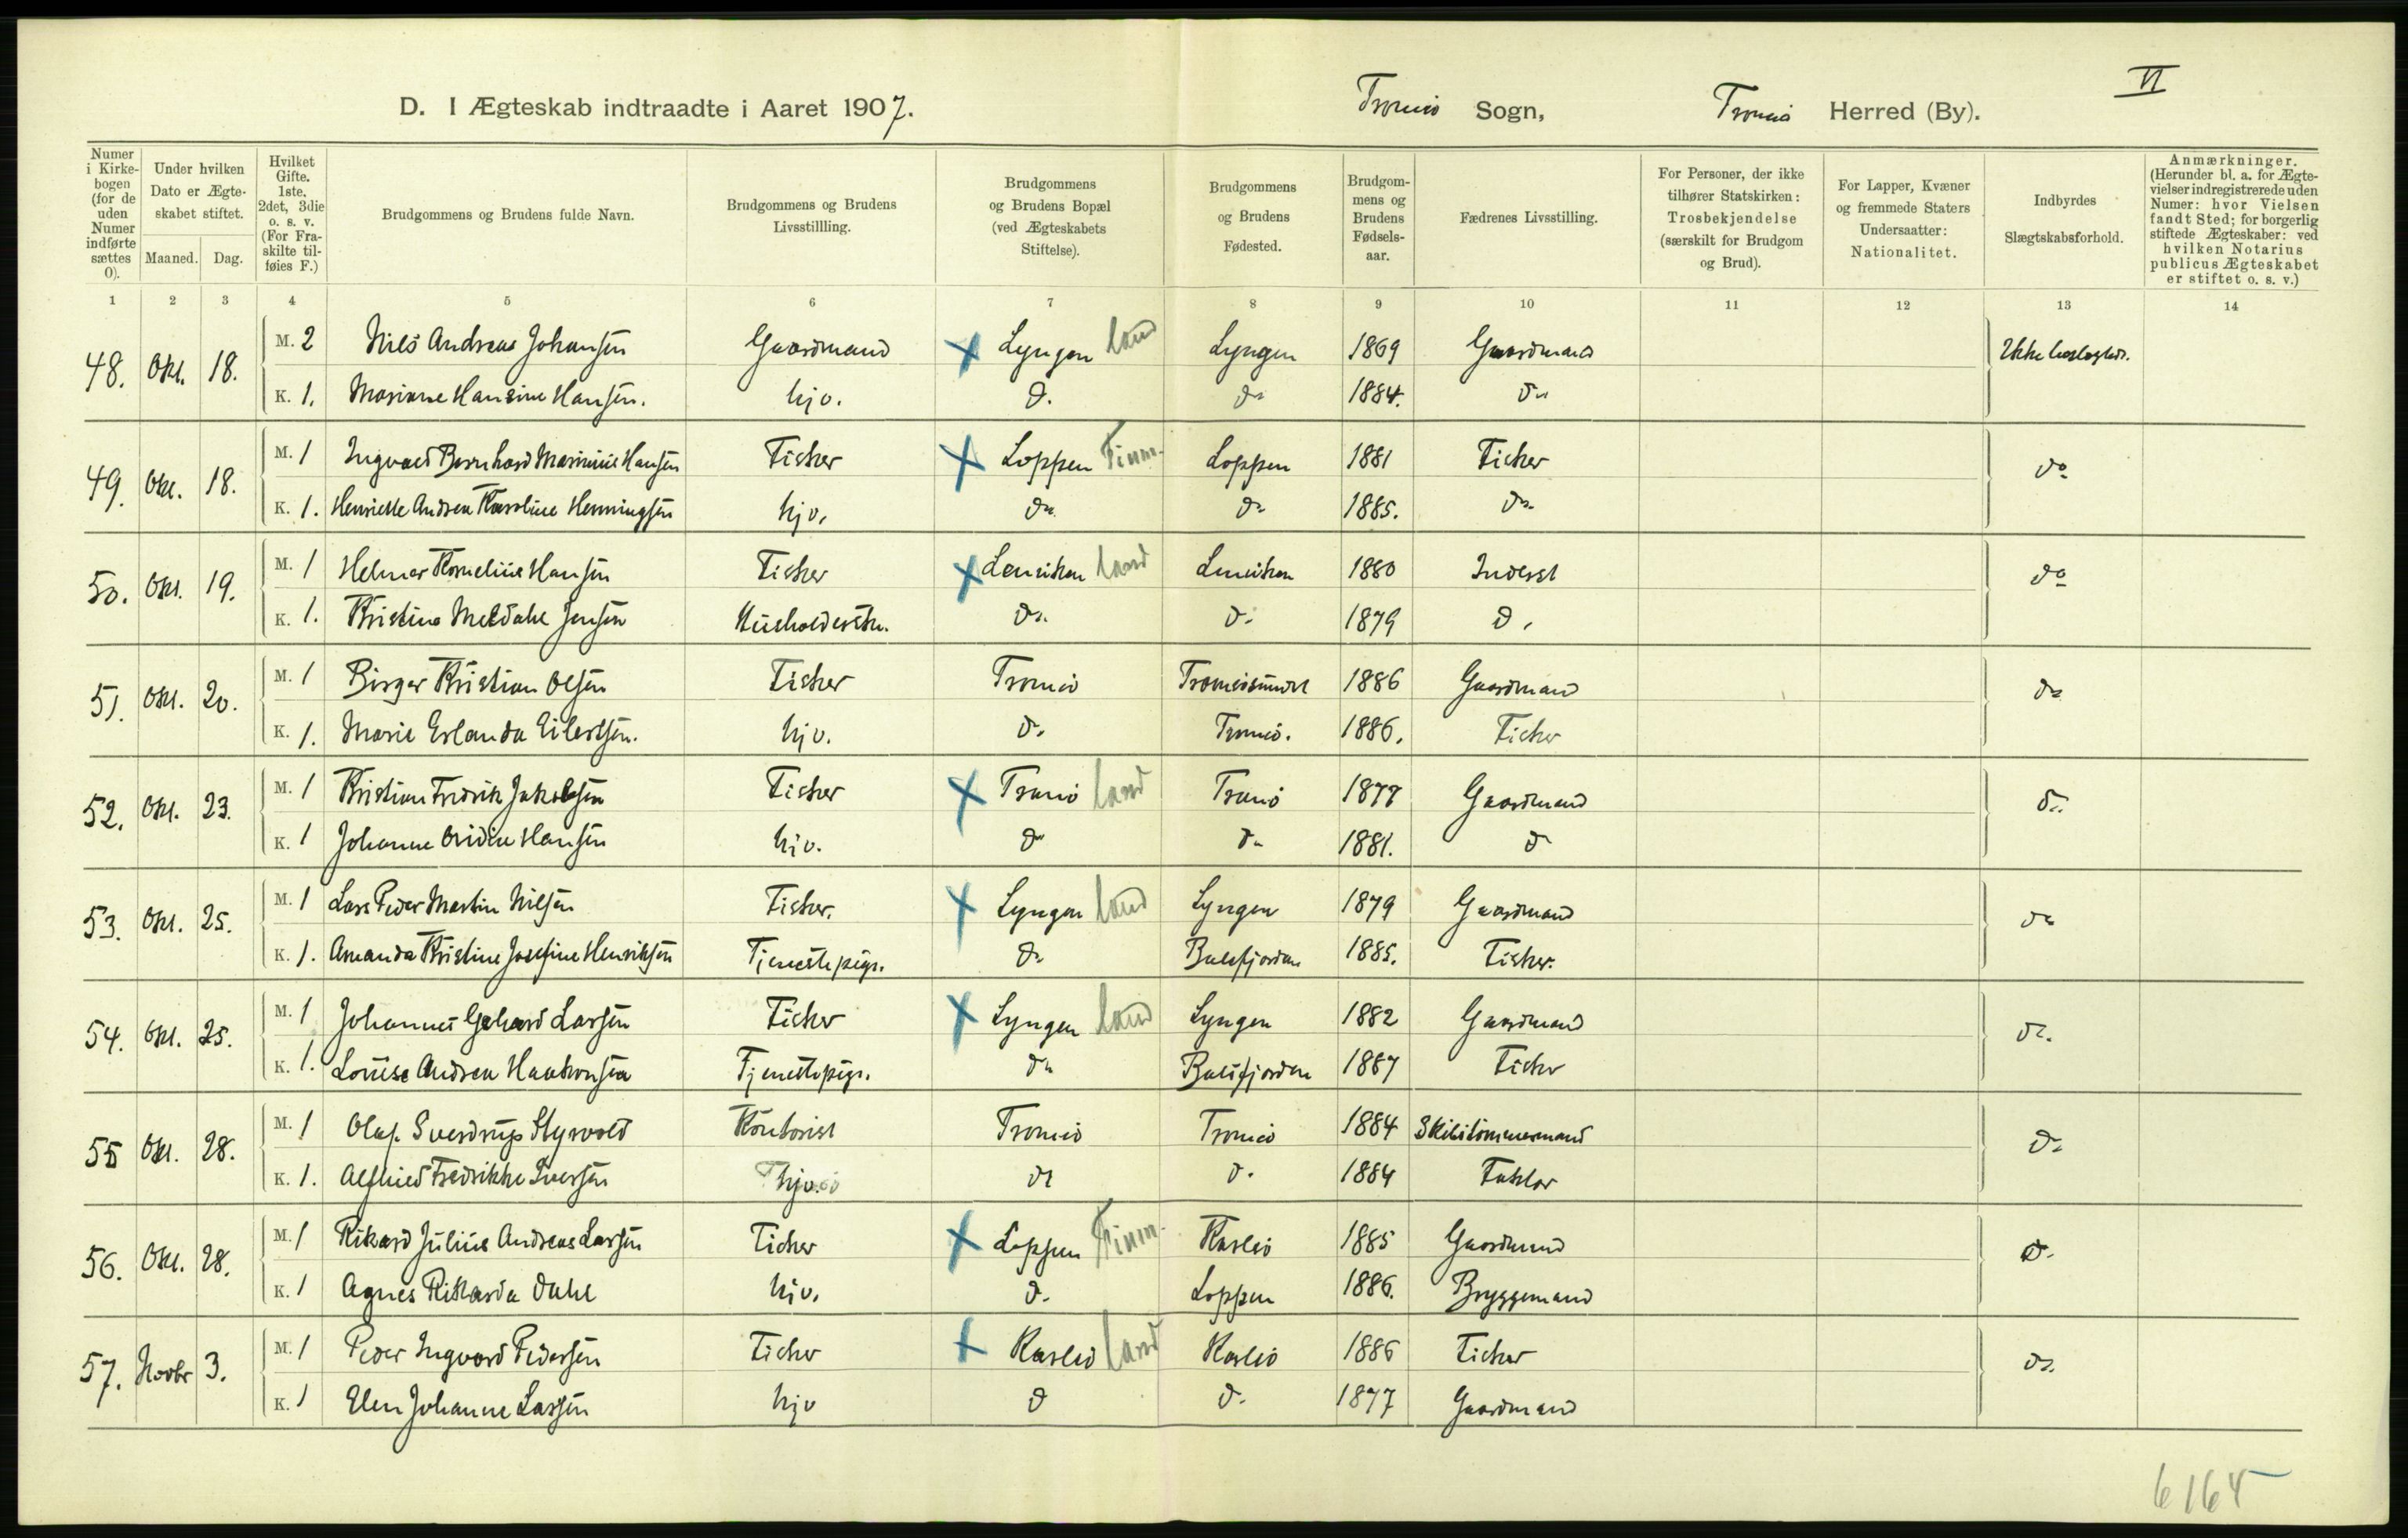 VI
D. I Ægteskab indtraadte i Aaret 1907. Tromsø Sogn, Tromsø Herred (By).
Numer i Kirkebogen (for de uden Numer indførte sættes 0). | Under hvilken Dato er Ægteskabet stiftet. Maaned. Dag. | Hvilket Gifte. 1ste, 2det, 3die o. s. v. (For Fraskilte tilføies F.) | Brudgommens og Brudens fulde Navn. | Brudgommens og Brudens Livsstillling. | Brudgommens og Brudens Bopæl (ved Ægteskabets Stiftelse). | Brudgommens og Brudens Fødested. | Brudgommens og Brudens Fødselsaar. | Fædrenes Livsstilling. | For Personer, der ikke tilhører Statskirken: Trosbekjendelse (særskilt for Brudgom og Brud). | For Lapper, Kvæner og fremmede Staters Undersaatter: Nationalitet. | Indbyrdes Slægtskabsforhold. | Anmærkninger. (Herunder bl. a. for Ægtevielser indregistrerede uden Numer: hvor Vielsen fandt Sted; for borgerlig stiftede Ægteskaber: ved hvilken Notarius publicus Ægteskabet er stiftet o. s. v.)
1 2 3 4 5 6 7 8 9 10 11 12 13 14
48. Okt. 18. M. 2 Nils Andreas Johansen Gaardmand X Lyngen land Lyngen 1869 Gaardmand Ikke beslægtede.
K. 1. Mariane Hansine Hansen. hjv. d. do 1884. do
49. Okt. 18. M. 1 Ingvald Bernhard Marinius Hansen Fisker X Loppen Finm. Loppen 1881 Fisker do
K. 1. Henriette Andrea Karoline Henningsen hjv. do do 1885. do
50. Okt. 19. M. 1 Helmer Kornelius Hansen Fisker X Lenviken land Lenviken 1880 Inderst do
K. 1. Kristina Meldahl Jensen Husholderske. do. d. 1879 d.
51. Okt. 20. M. 1 Birger Kristian Olsen Fisker Tromsø Tromsøsundet 1886 Gaardmand do
K. 1. Marie Erlanda Eilertsen. hjv. d. Tromsø. 1886. Fisker
52. Okt. 23. M. 1 Kristian Fredrik Jakobsen Fisker X Tranø land Tranø 1877 Gaardmand do.
K. 1 Johanne Ovidie Hansen hjv. do do 1881. d
53. Okt. 25. M. 1 Lars Peder Martin Nilsen Fisker. X Lyngen land Lyngen 1879 Gaardmand do
K. 1. Amanda Kristine Josefine Henriksen Tjenestepige. do Balsfjorden 1885. Fisker.
54. Okt. 25. M. 1 Johannes Gehard Larsen Fisker X Lyngen land Lyngen 1882 Gaardmand do.
K. 1. Louise Andrea Haakonsen Tjenestepige. do Balsfjorden 1887 Fisker
55 Okt. 28. M. 1 Olaf Sverdrup Styrvold Kontorist Tromsø Tromsø 1884 Skibstømmermand do
K. 1. Alfhild Fredrikke Iversen hjv. do d. 1884 Faktor
56. Okt. 28. M. 1 Rikard Julius Andreas Larsen Fisker X Loppen Finm. Karlsø 1885 Gaardmand d.
K. 1 Agnes Rikarda Dahl hjv. d. Loppen 1886. Bryggemand
57. Novbr 3. M. 1 Peder Ingvard Pedersen Fisker X Karlsø land Karlsø 1886 Fisker do.
K. 1 Elen Johanne Larsen hjv d d. 1877 Gaardmand
6164